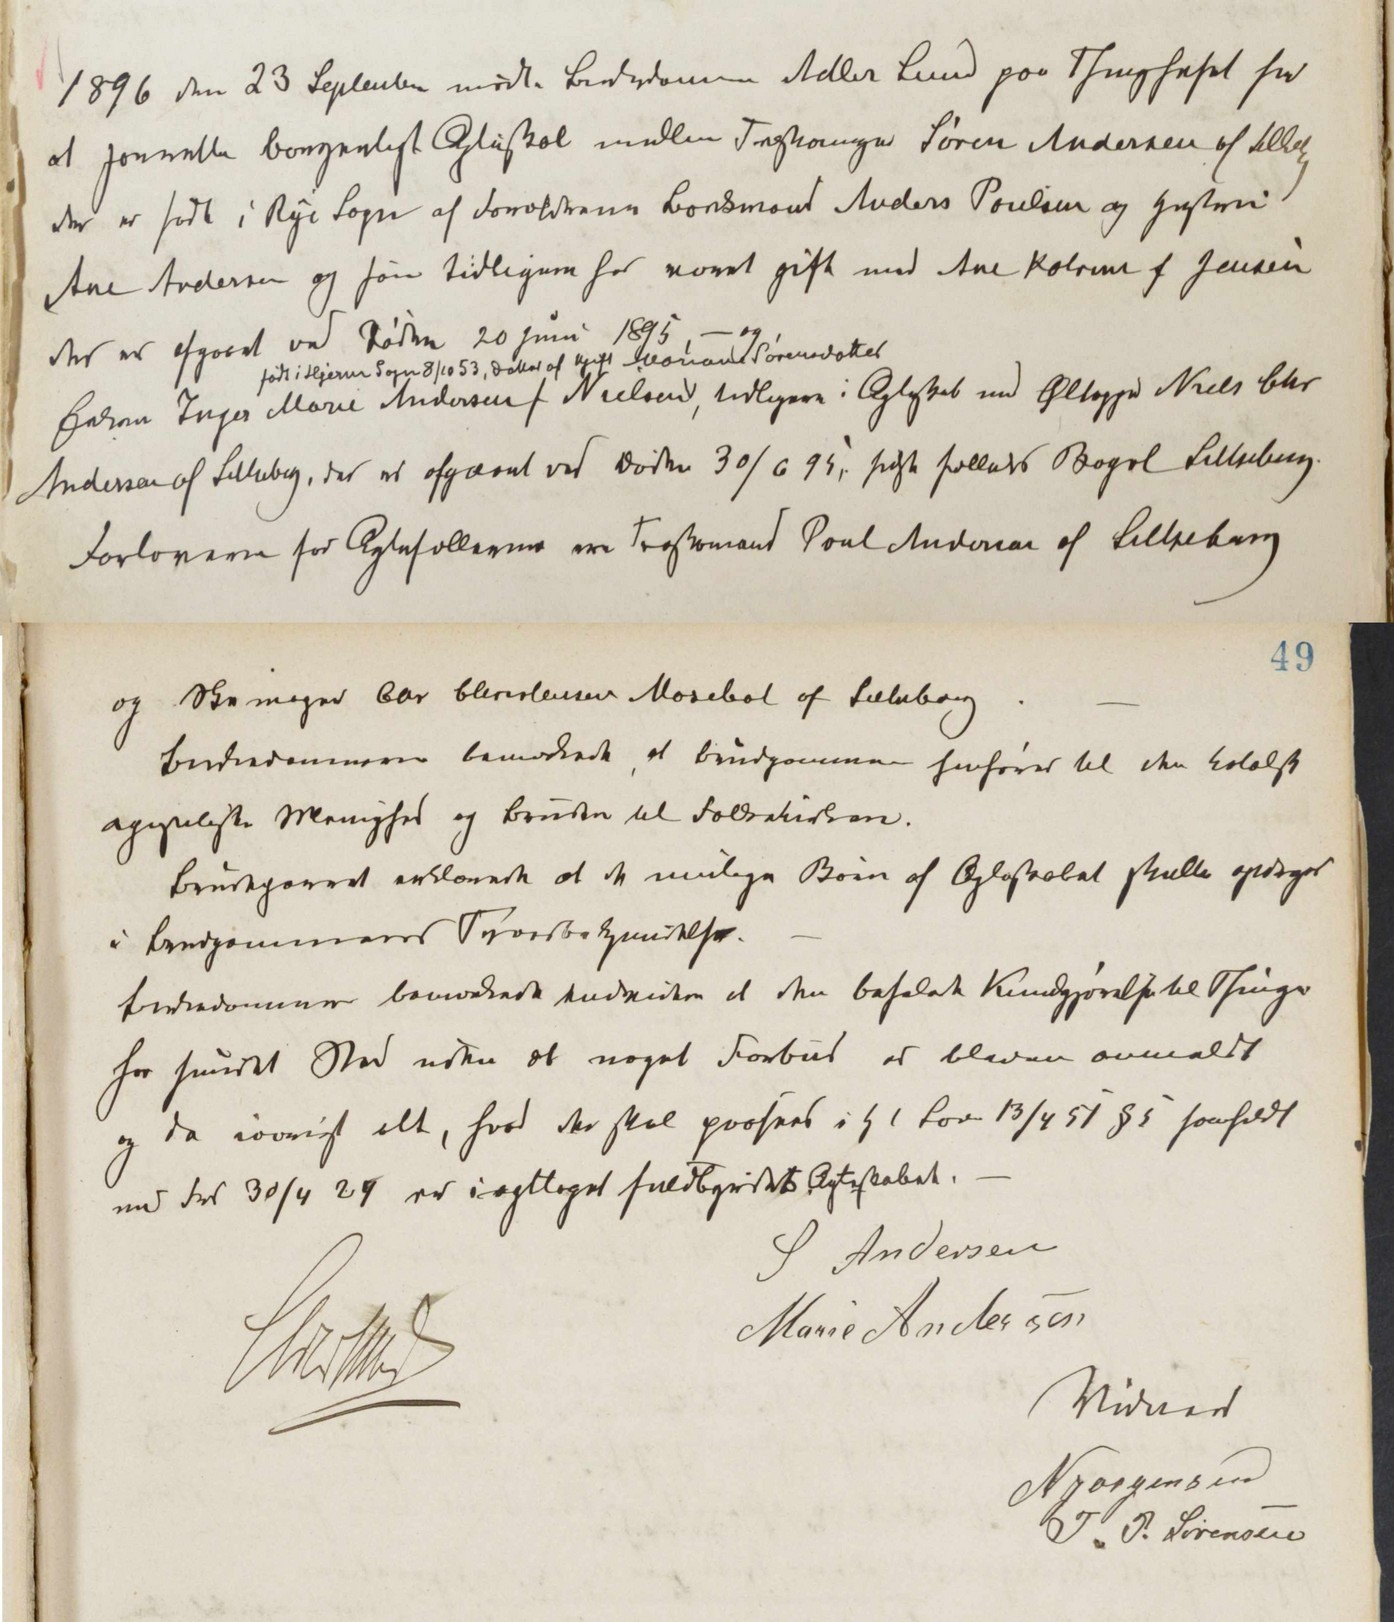 1896 den 23 September mødte Birkedommer Adler Lund paa Thinghuset for
at foretage borgerligt Ægteskab mellem Træskomager Søren Andersen af Silkeborg
der er født i Rye Sogn af Forældrene Bødkermand Anders Poulsen og Hustru
Ane Andersen og som tidligere har været gift med Ane Katrine f Jensen
der er afgaaet ved Døden 20 Juni 1895, — og
født i Hjerm Sogn 8/10 53, Datter af ugift Mariane Sørensdatter
Enken Inger Marie Andersen f Nielsen, tidligere i Ægteskab med Øltapper Niels Chr
Andersen af Silkeborg, der er afgaaet ved Døden 30/6 95, fælleds Bopæl Silkeborg.
Forlovere for Ægtefællerne ere Træskomand Poul Andersen af Silkeborg
49
og Skomager Christensen Mosebøl af Silkeborg . —
Birkedommeren bemærkede, at Brudgommen henhører til den katolsk
apostoliske Menighed og Bruden til Folkekirken.
Brudeparret erklærede at de mulige Børn af Ægteskabet skulle opdrages
i Brudgommens Troesbekjendelse. —
Birkedommeren bemærkede endvidere at den befalede Kundgjørelse til Thinge
har fundet Sted uden at noget Forbud er bleven anmeldt
og da iøvrigt alt, hvad der skal præsteres i H t Lov 13/4 51 § 5 sammenholdt
med Frd 30/4 24 er iagttaget fuldbyrdedes Ægteskabet. —
S Andersen
Marie Andersen
Vidner
N Jørgensen
T. P. Sørensen